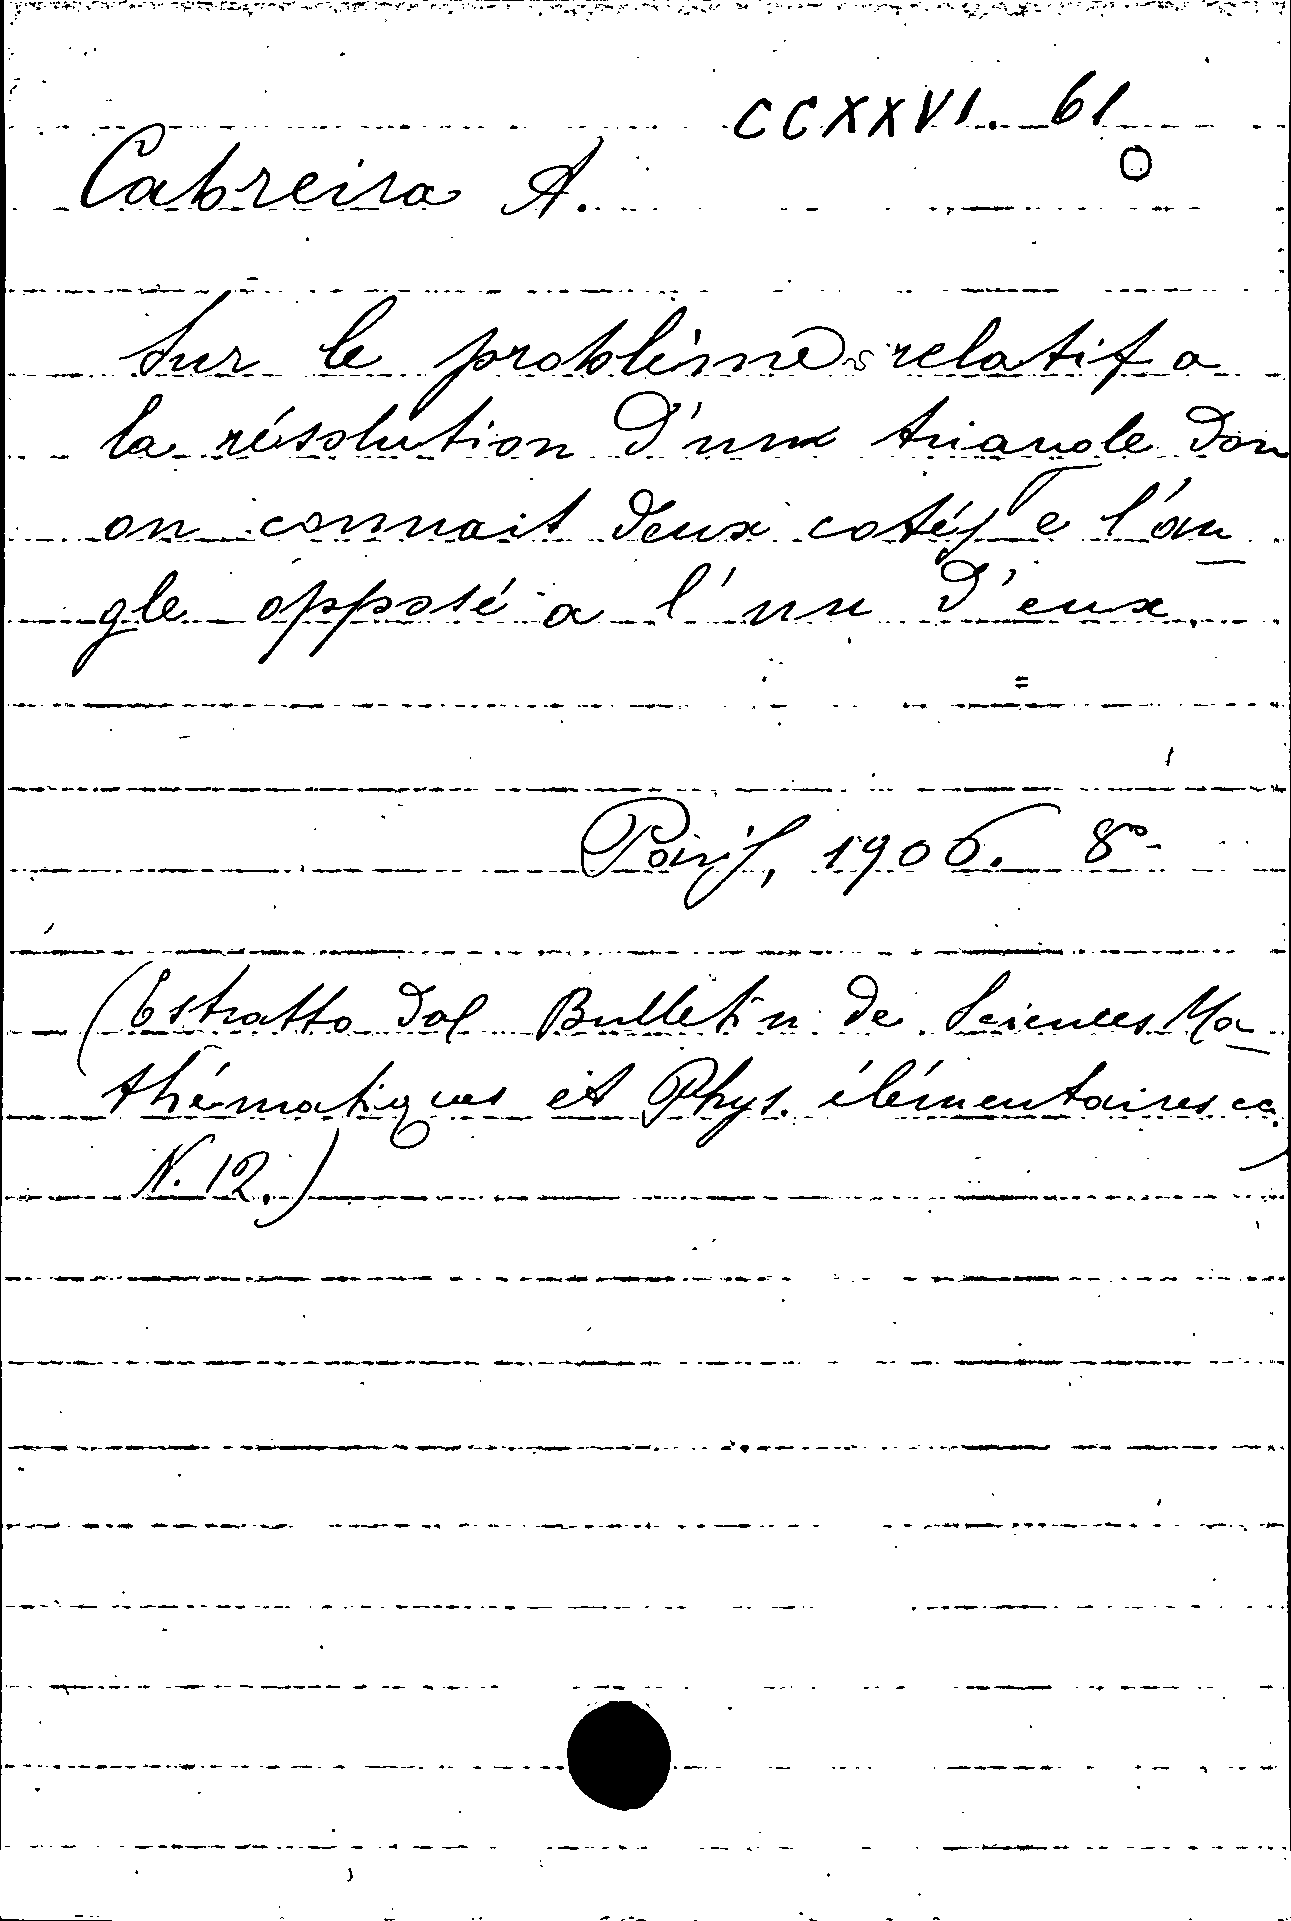 CCXXVI. 61
Cabreira A.
Sur le problème relatif a
la résolution d'un triangle don
on connait deux cotés e l'an
gle opposé a l'un d'eux.
Paris, 1906. 8°
(Estratto dal Bulletin de Sciences Ma
thématiques et Phys. élémentaires ec.
N. 12.)